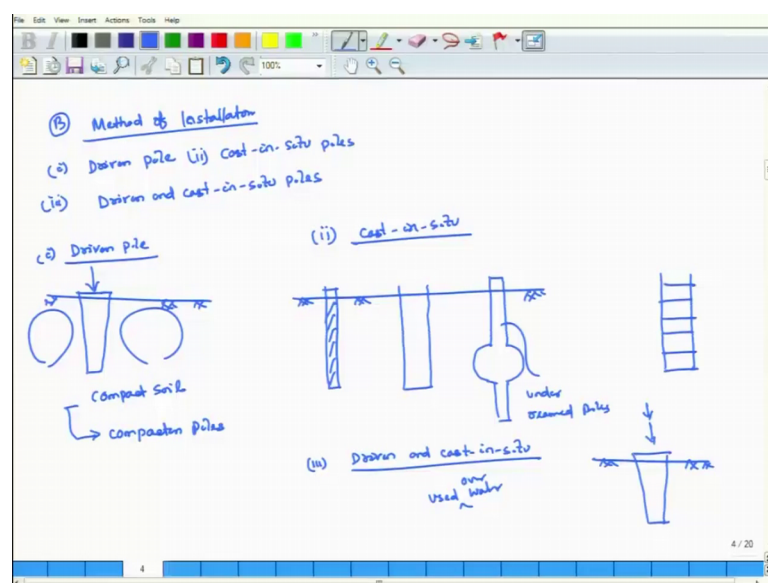 File Edit View Insert Actions Tools Help
B I
100%
(B) Method of Installation
(i) Driven pile (ii) Cast-in-situ piles
(iii) Driven and cast-in-situ piles
(i) Driven pile
(ii) cast-in-situ
compact soil
compaction piles
under
reamed piles
(iii) Driven and cast-in-situ
over
used water
4 / 20
4